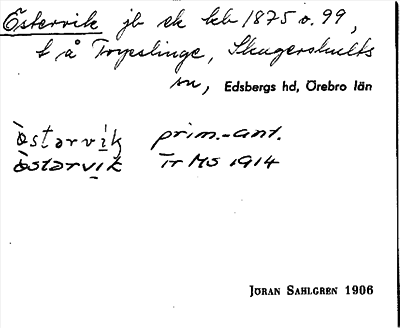 Östervik jb ek kb 1875 o. 99,
t. å Torpslinge, Skagershults
sn, Edsbergs hd, Örebro län
òstərvìk prim.-ant.
òstərvìk Tr MS 1914
JÖRAN SAHLGREN 1906